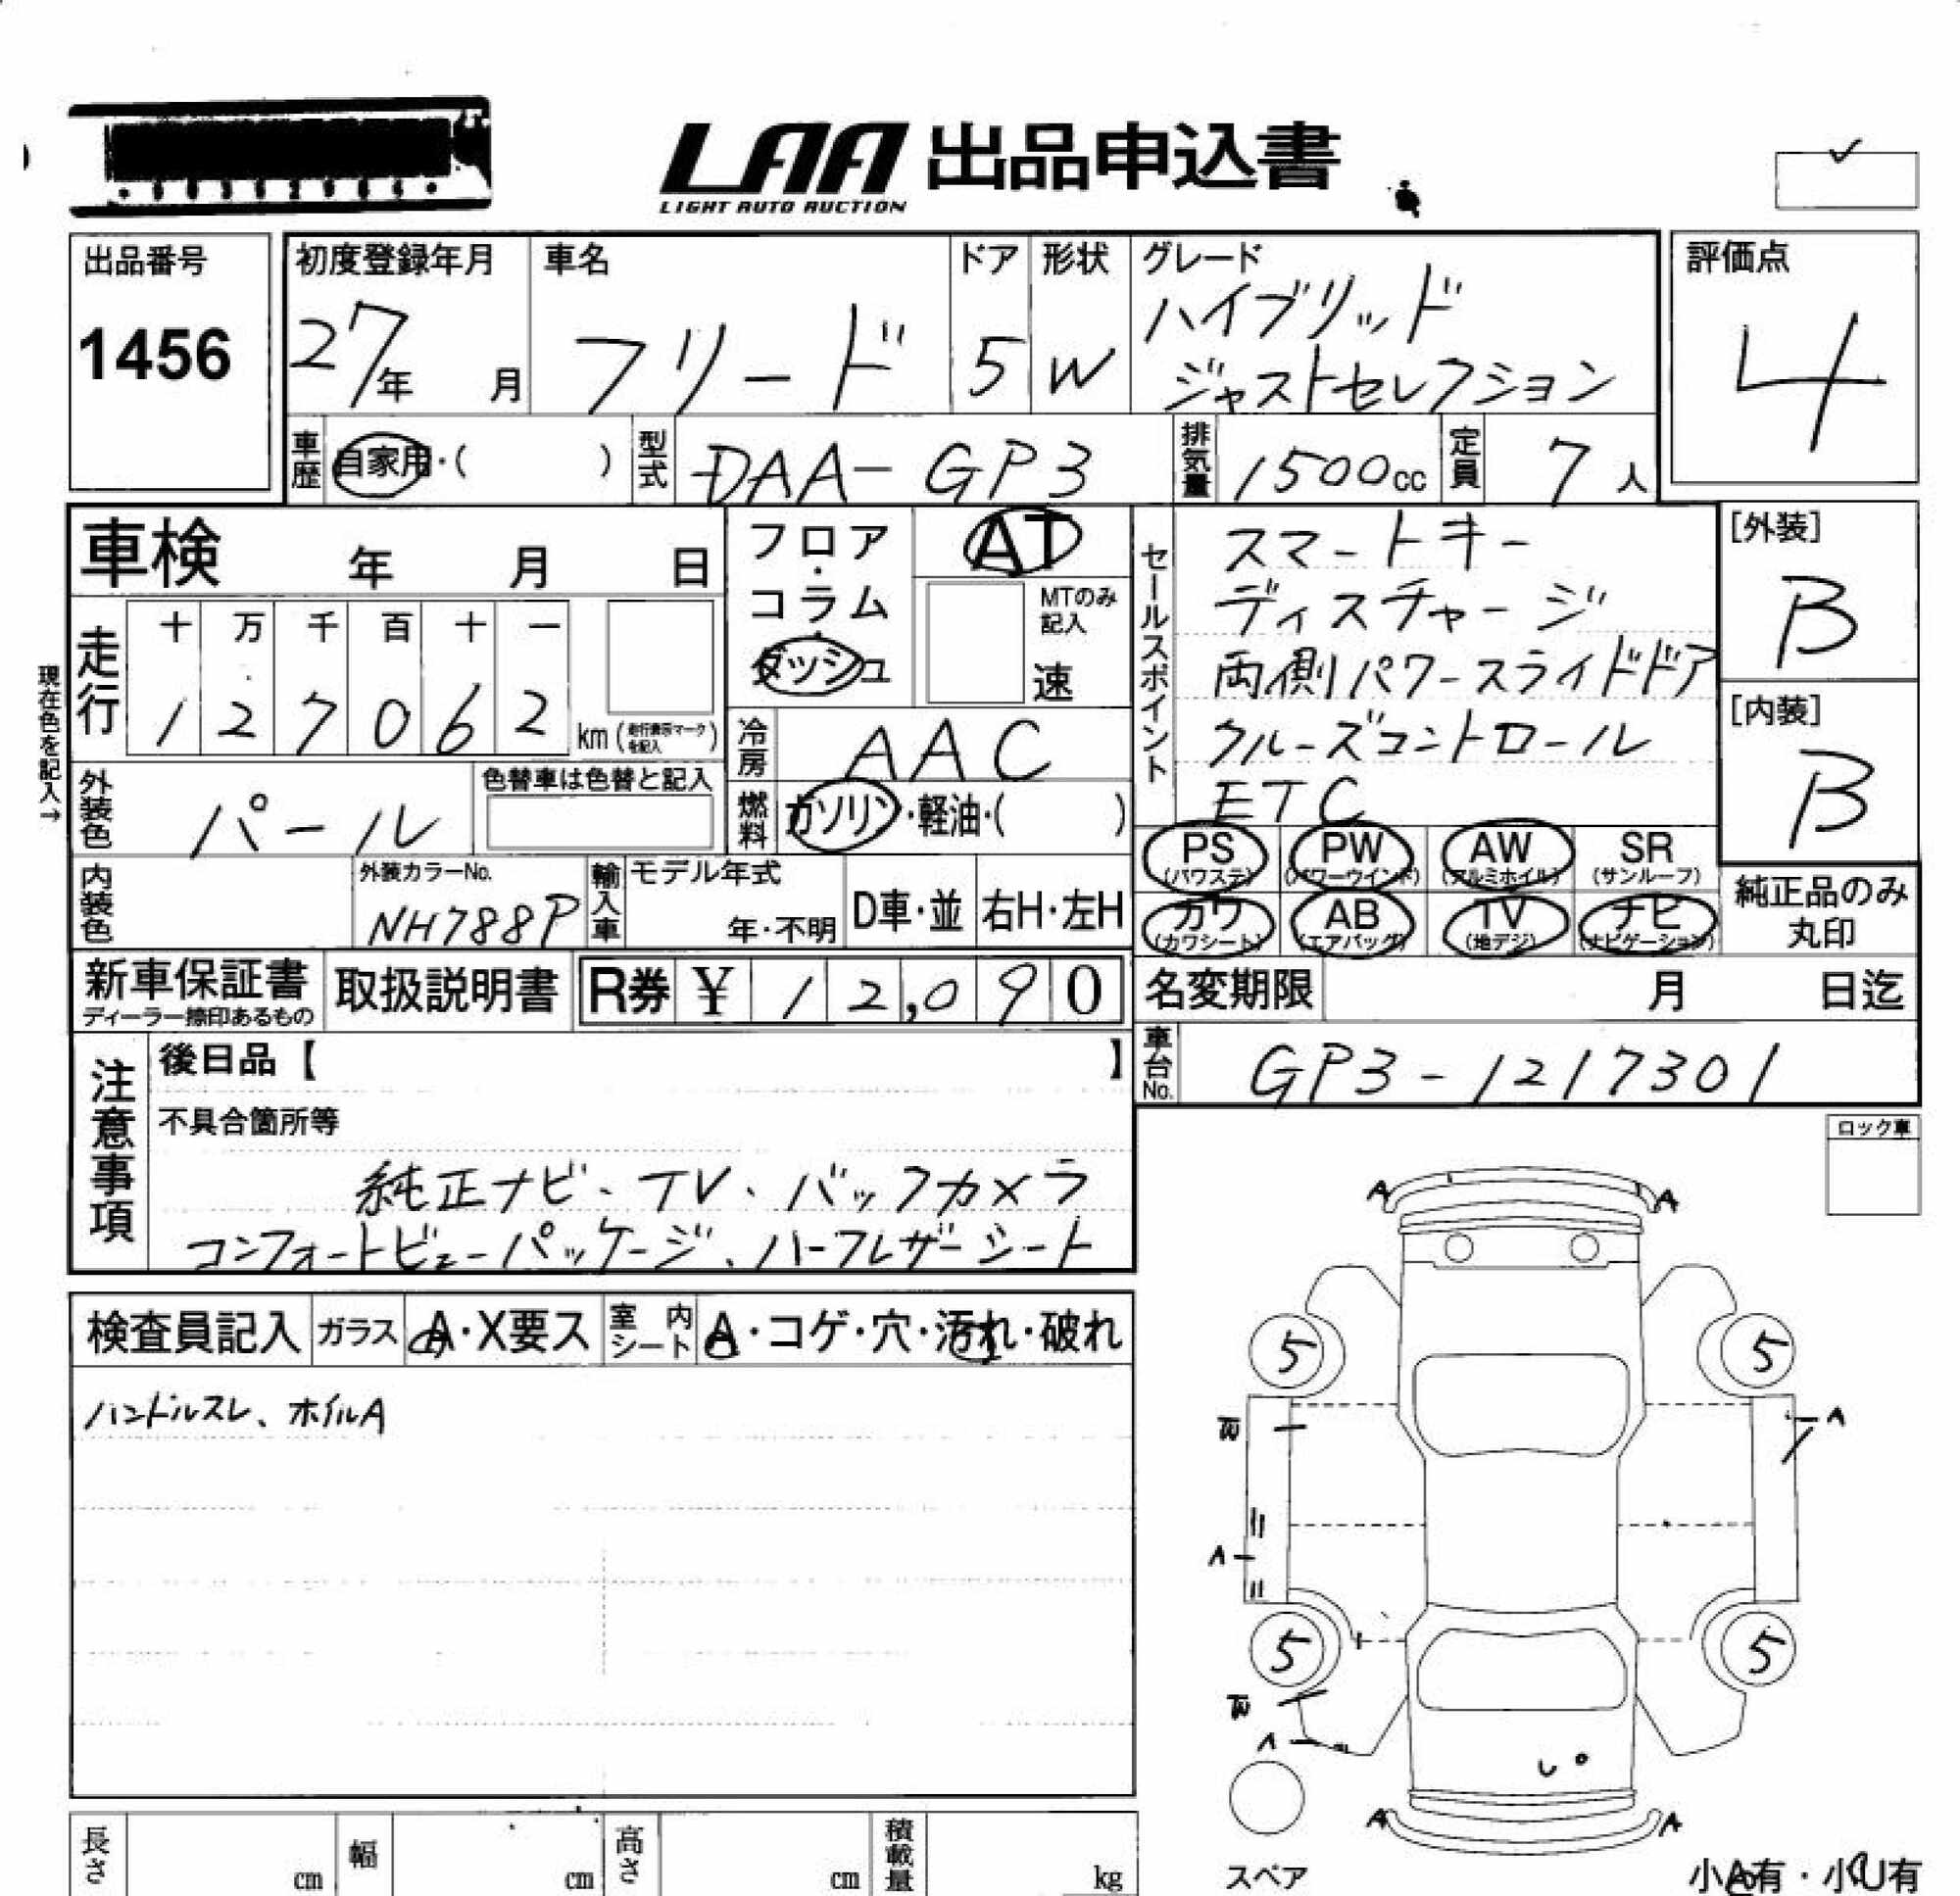 LAA 出品申込書
LIGHT AUTO AUCTION
出品番号
1456
初度登録年月
27年 月
車名
フリード
ドア
5
形状
W
グレード
ハイブリッド
ジャストセレクション
評価点
4
車歴 自家用・( )
型式 DAA-GP3
排気量 1500cc
定員 7人
車検 年 月 日
現在色を記入→
走行
十 万 千 百 十 一
1 2 7 0 6 2 km
フロア・コラム・ダッシュ
AT
MTのみ記入
速
冷房 AAC
燃料 ガソリン・軽油・( )
外装色 パール
色替車は色替と記入
内装色
外装カラーNo.
NH788P
輸入車
モデル年式
年・不明
D車・並
右H・左H
セールスポイント
スマートキー
ディスチャージ
両側パワースライドドア
クルーズコントロール
ETC
[外装]
B
[内装]
B
PS (パワステ)
PW (パワーウインド)
AW (アルミホイル)
SR (サンルーフ)
カワ (カワシート)
AB (エアバッグ)
TV (地デジ)
ナビ (ナビゲーション)
純正品のみ
丸印
新車保証書
ディーラー捺印あるもの
取扱説明書
R券 ¥ 12,090
名変期限 月 日迄
車台No. GP3-1217301
注意事項
後日品【 】
不具合箇所等
純正ナビ、TV、バックカメラ
コンフォートビューパッケージ、ハーフレザーシート
ロック車
検査員記入
ガラス A・X要ス
室内シート A・コゲ・穴・汚れ・破れ
ハンドルスレ、ホイルA
A A
5 5
A
A
5 5
A
A A
スペア
小A有・小U有
長さ cm
幅 cm
高さ cm
積載量 kg